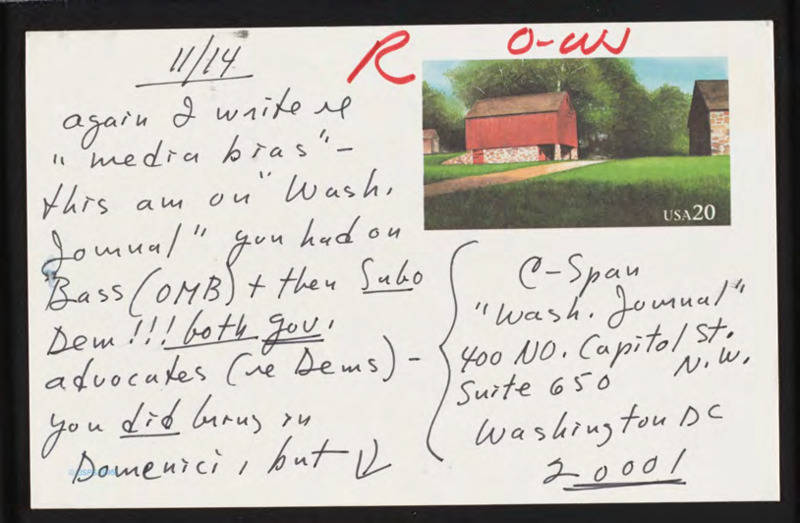 11/14
R
O-W
again I write re
"media bias"-
this am on "Wash.
Journal" you had on
Bass (OMB) + then Sabo
Dem!!! both gov.
advocates (re Dems) -
you did bring in
Domenici, but ↓
USA20
C-Span
"Wash. Journal"
400 NO. Capitol St.
N.W.
Suite 650
Washington DC
20001